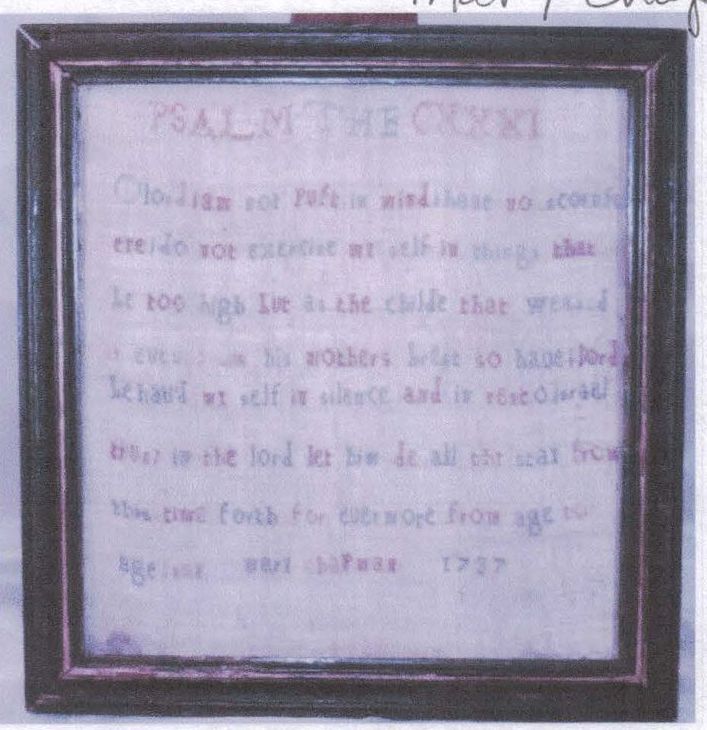 PSALM THE CXXXI
O lord i am not puft in mind i haue no scornfu
eye i do not exercise my self in things that
be too high but as the childe that weaned
is euen his mothers brest so haue i lord
behaud my self in silence and in rest O israel
trust in the lord let him be all the stay from
this time forth for euermore from age to
age mary chapman 1737